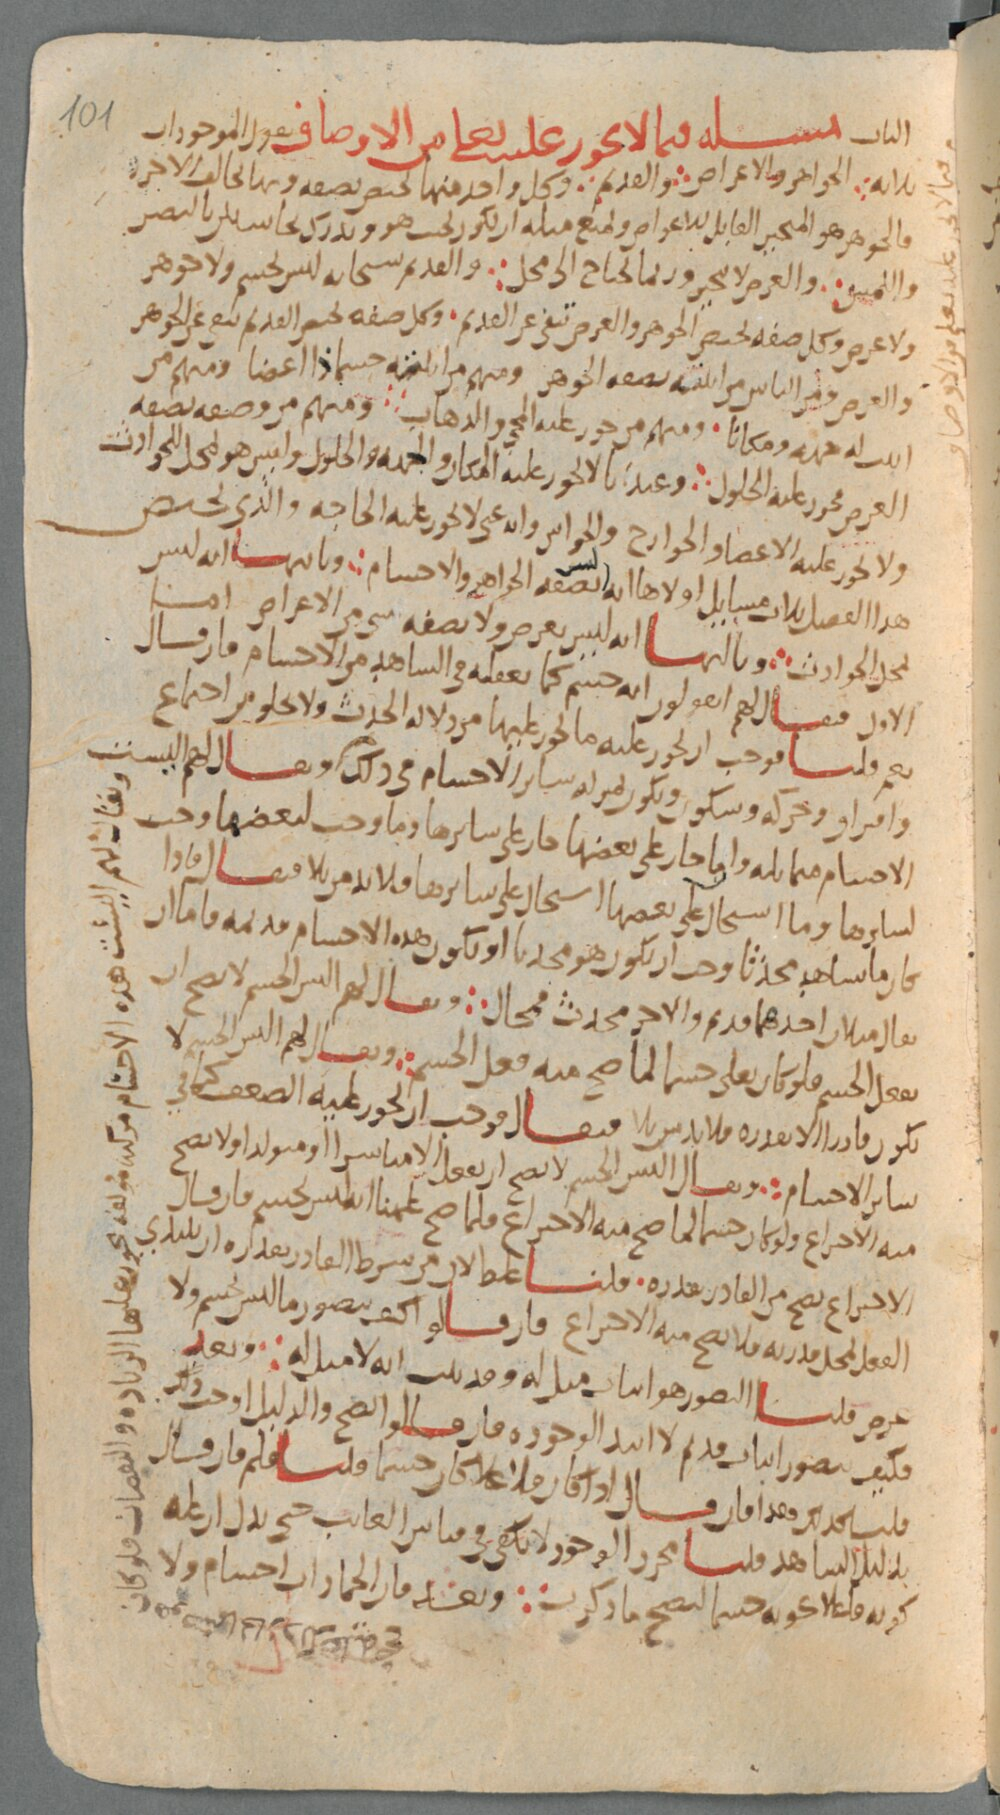 101
الباب مسله فيما لا يجوز عليه تعالى من الاوصاف يقول الموجودات
ثلاثه الجواهر والاعراض والقديم وكل واحد منها يختص بصفه وبها يخالف الاخر
فالجوهر هو المتحيز القابل للاعراض ويمنع مثله ان يكون بحيث هو ويدرك بحاستين بالبصر
واللمس والعرض لا يتحيز وربما يحتاج الى محل والقديم سبحانه ليس بجسم ولا جوهر
ولا عرض وكل صفه تختص الجوهر والعرض تنفى عن القديم وكل صفه تختص القديم تنفى عن الجوهر
والعرض ومن الناس من اثبته بصفه الجوهر ومنهم من اثبته جسما ذا اعضا ومنهم من
اثبت له جهه ومكانا ومنهم من جوز عليه المجي والذهاب ومنهم من وصفه بصفه
العرض فجوز عليه الحلول وعندنا لا يجوز عليه المكان والجهه والحلول وليس هو بمحل للحوادث
ولا يجوز عليه الاعضا والجوارح والحواس وانه غني لا يجوز عليه الحاجه والذي يختص
هذا الفصل ثلاث مسايل اولاها انه ليس بصفه الجواهر والاجسام وثانيها انه ليس
بمحل الحوادث وثالثها انه ليس بعرض ولا بصفه شي من الاعراض اما
الاول فيقال لهم اتقولون انه جسم كما نعقله في الشاهد من الاجسام فان قال
نعم قلنا فوجب ان يجوز عليه ما يجوز عليها من دلاله الحدث ولا يخلو من اجتماع
وافتراق وحركه وسكون ويكون بمنزله ساير الاجسام في ذلك ويقال لهم اليست
الاجسام متماثله وانما جاز على بعضها جاز على سايرها وما وجب لبعضها وجب
لسايرها وما استحال على بعضها استحال على سايرها فلا بد من بلا فيقال فاذا
كان ما نشاهد محدثا وجب ان يكون هو محدثا او يكون هذه الاجسام قديمه فاما ان
يقال مثلان احدهما قديم والاخر محدث فمحال ويقال لهم اليس الجسم لا يصح ان
يفعل الجسم فلو كان تعالى جسما لما صح منه فعل الجسم ويقال لهم اليس الجسم لا
يكون قادرا الا بقدره فلا بد من بلا فيقال فوجب ان يجوز عليه الضعف كما في
ساير الاجسام ويقال اليس الجسم لا يصح ان يفعل الا مباشرا او متولدا ولا يصح
منه الاختراع ولو كان جسما لما صح منه الاختراع فلما صح علمنا انه ليس بجسم فان قال
الاختراع يصح من القادر بقدره قلنا غلط لان من شرط القادر بقدره ان يبتدي
الفعل بمحل قدرته فلا يصح منه الاختراع فان قالوا كيف يتصور ما ليس بجسم ولا
عرض قلنا التصور هو اثبات مثل له وقد ثبت انه لا مثل له وبعد
فكيف يتصور اثبات قديم لا ابتدا لوجوده فان قالوا الصحيح والدليل اوجب ذلك
قلنا كذلك هذا فان قال اذا كان فاعلا كان جسما قلنا فلم فان قال
بدليل الشاهد قلنا مجرد الوجود لا يكفي في قياس الغايب حتى يدل ان علمه
كونه فاعلا كونه جسما ليصح ما ذكرت وبعد فان الجمادات اجسام ولا
فيما لا يجوز عليه تعالى من الاوصاف
ويقال لهم اليست هذه الاجسام مركبه مولفه يجوز عليها الزياده والنقصان فلو كان